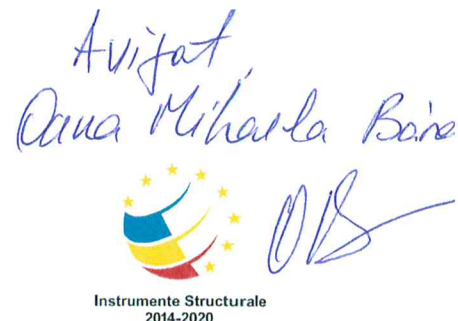 Avizat,
Oana Mihaela
Instrumente Structurale
2014-2020